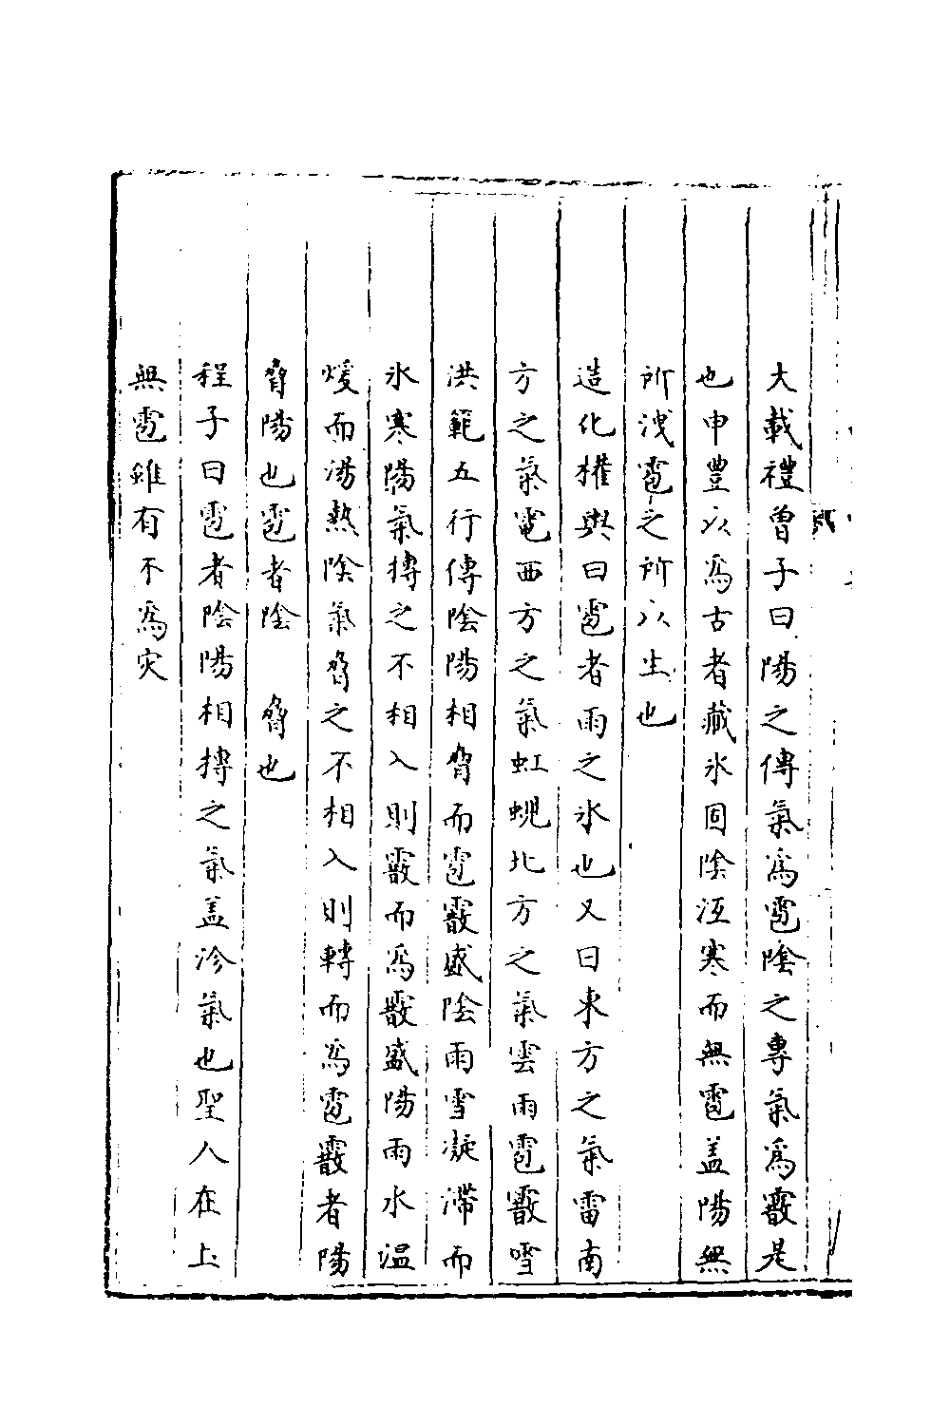 大戴禮曽子曰陽之傳氣爲雹陰之專氣爲霰是
也申豐以爲古者藏氷固陰沍寒而無雹盖陽無
所洩雹之所以生也
造化權輿曰雹者雨之氷也又曰東方之氣雷南
方之氣電西方之氣虹蜺北方之氣雲雨雹霰雪
洪範五行傳陰陽相脅而雹霰盛陰雨雪凝滯而
氷寒陽氣摶之不相入則霰而爲霰盛陽雨水温
煖而湯熱陰氣脅之不相入則轉而爲雹霰者陽
脅陽也雹者陰 脅也
程子曰雹者陰陽相摶之氣盖沴氣也聖人在上
無雹雖有不爲灾